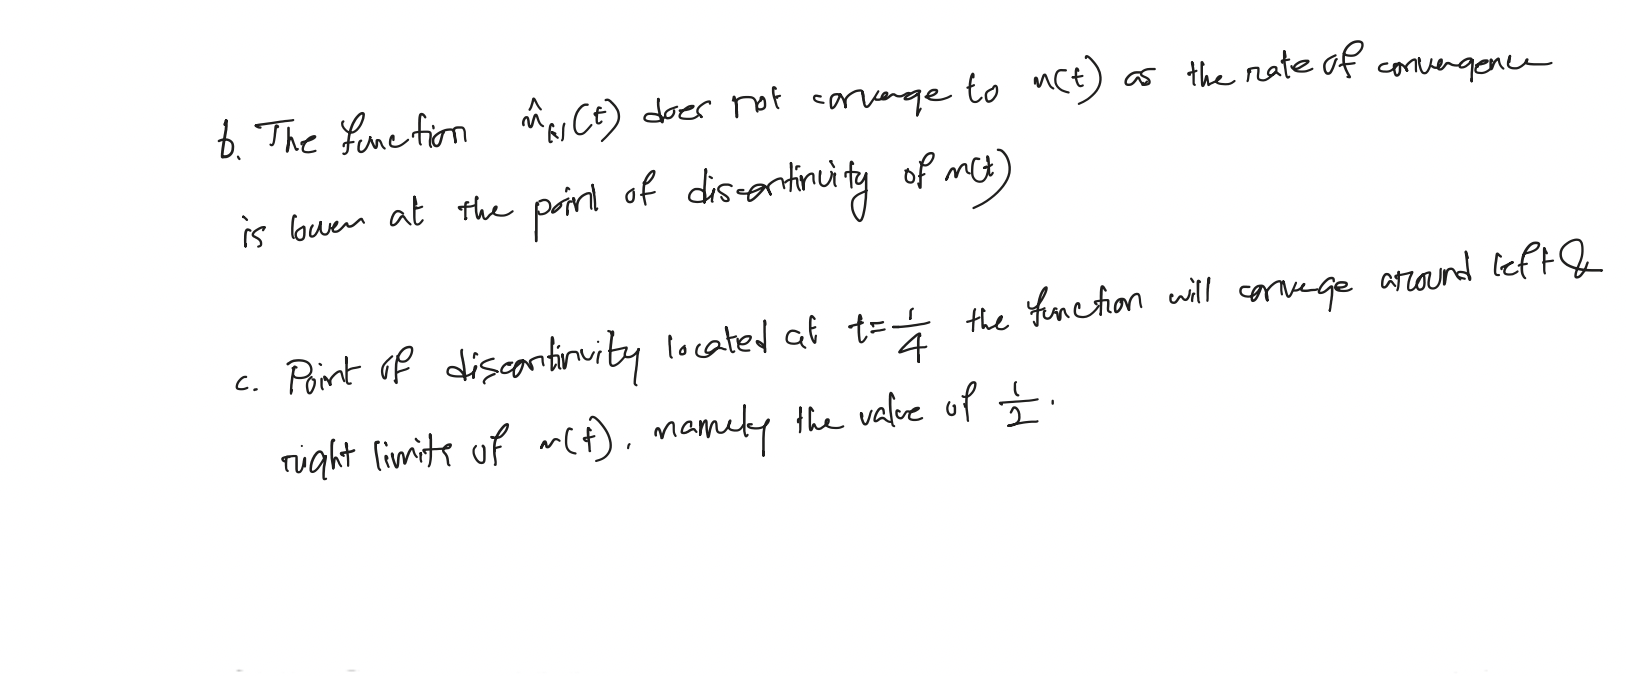 b. The function x̂_N(t) does not converge to x(t) as the rate of convergence
is lower at the point of discontinuity of x(t)
c. Point of discontinuity located at t=1/4 the function will converge around left &
right limits of x(t), namely the value of 1/2.